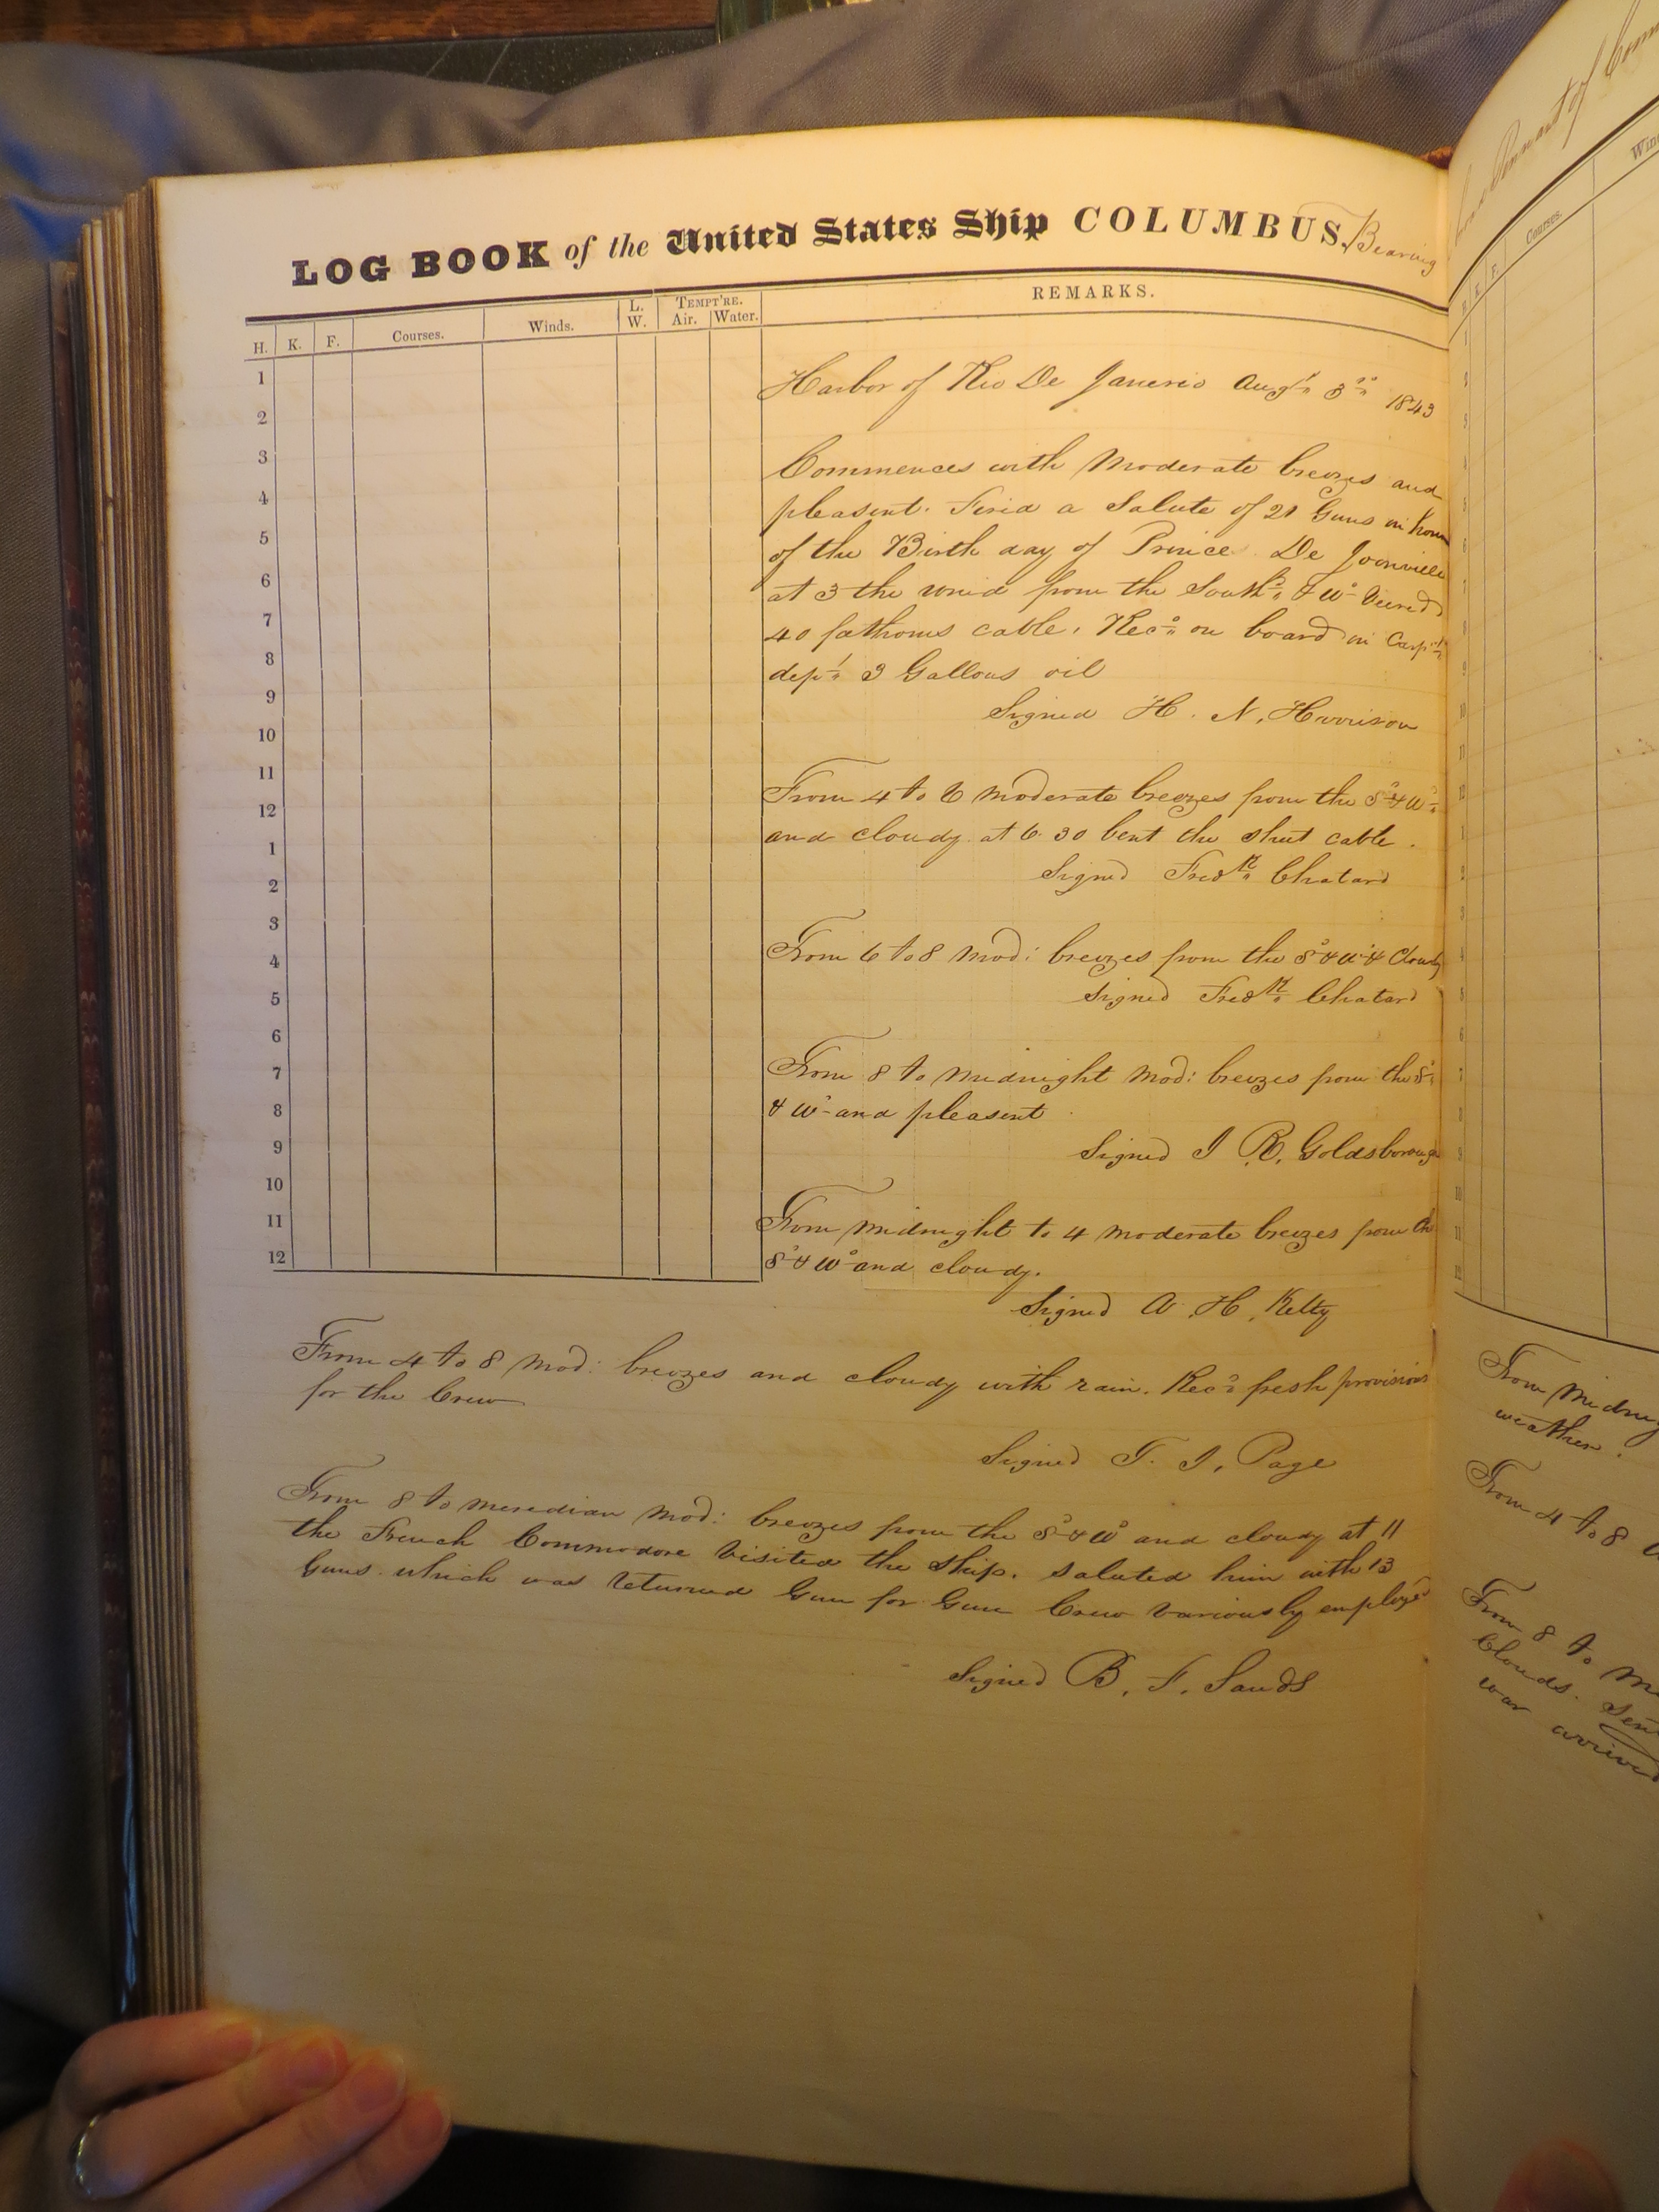 LOG BOOK of the United States Ship COLUMBUS, Bearing
H. K. F. Courses. Winds. L. W. TEMPT'RE. Air. Water. REMARKS.
1
2
3
4
5
6
7
8
9
10
11
12
1
2
3
4
5
6
7
8
9
10
11
12
Harbor of Rio De Janerio Augt 3rd 1843
Commences with Moderate breezes and
pleasent. Fired a Salute of 21 Guns in honor
of the Birth day of Prince De Joenville
at 3 the wind from the Southd & Wd Veered
40 fathoms cable. Recd on board in Carptr
dept 3 Gallons oil
Signed H. N. Harrison
From 4 to 6 moderate breezes from the Sd & Wd
and cloudy. at 6.30 bent the sheet cable.
Signed Fredk Chatard
From 6 to 8 mod: breezes from the Sd & Wd & Cloudy
Signed Fredk Chatard
From 8 to Midnight Mod: breezes from the Sd
& Wd and pleasent
Signed J R. Goldsborough
From midnight to 4 moderate breezes from the
Sd & Wd and cloudy.
Signed A. H. Kelty
From 4 to 8 Mod: breezes and cloudy with rain. Recd fresh provisions
for the Crew
Signed T. J. Page
From 8 to meredian Mod: breezes from the Sd & Wd and cloudy at 11
the French Commodore Visited the Ship. saluted him with 13
Guns which was returned Gun for Gun Crew variously employed
Signed B. F. Sands
Pennant of
Courses.
From Midn
weather.
From 4 to 8
From 8 to M
Clouds. Sen
war arrived